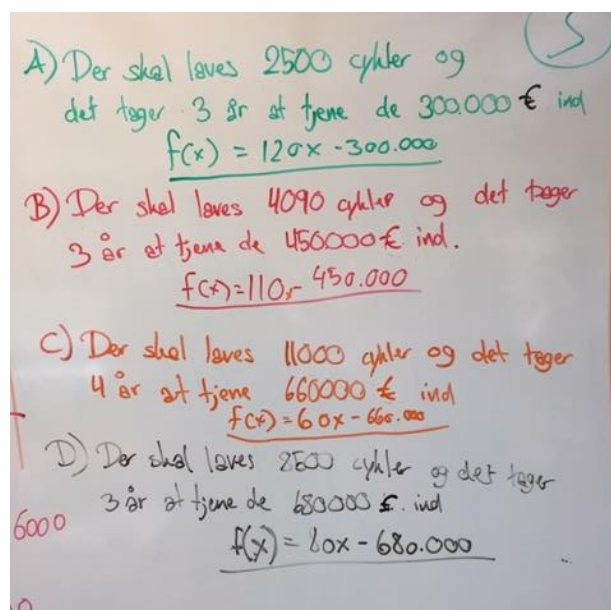 5
A) Der skal laves 2500 cykler og
det tager 3 år at tjene de 300.000 € ind
f(x) = 120x - 300.000
B) Der skal laves 4090 cykler og det tager
3 år at tjene de 450000 € ind.
f(x) = 110x - 450.000
C) Der skal laves 11000 cykler og det tager
4 år at tjene 660000 € ind
f(x) = 60x - 660.000
D) Der skal laves 2500 cykler og det tager
3 år at tjene de 680000 €. ind
6000
f(x) = 80x - 680.000